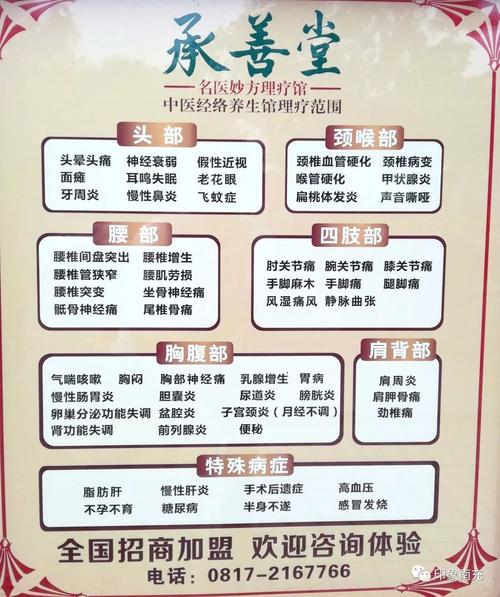 承善堂
名医妙方理疗馆
中医经络养生馆理疗范围
头部
头晕头痛 神经衰弱 假性近视
面瘫 耳鸣失眠 老花眼
牙周炎 慢性鼻炎 飞蚊症
颈喉部
颈椎血管硬化 颈椎病变
喉管硬化 甲状腺炎
扁桃体发炎 声音嘶哑
腰部
腰椎间盘突出 腰椎增生
腰椎管狭窄 腰肌劳损
腰椎突变 坐骨神经痛
骶骨神经痛 尾椎骨痛
四肢部
肘关节痛 腕关节痛 膝关节痛
手脚麻木 手脚痛 腿脚痛
风湿痛风 静脉曲张
胸腹部
气喘咳嗽 胸闷 胸部神经痛 乳腺增生 胃病
慢性肠胃炎 胆囊炎 尿道炎 膀胱炎
卵巢分泌功能失调 盆腔炎 子宫颈炎（月经不调）
肾功能失调 前列腺炎 便秘
肩背部
肩周炎
肩胛骨痛
劲椎痛
特殊病症
脂肪肝 慢性肝炎 手术后遗症 高血压
不孕不育 糖尿病 半身不遂 感冒发烧
全国招商加盟 欢迎咨询体验
电话：0817-2167766
印象南充